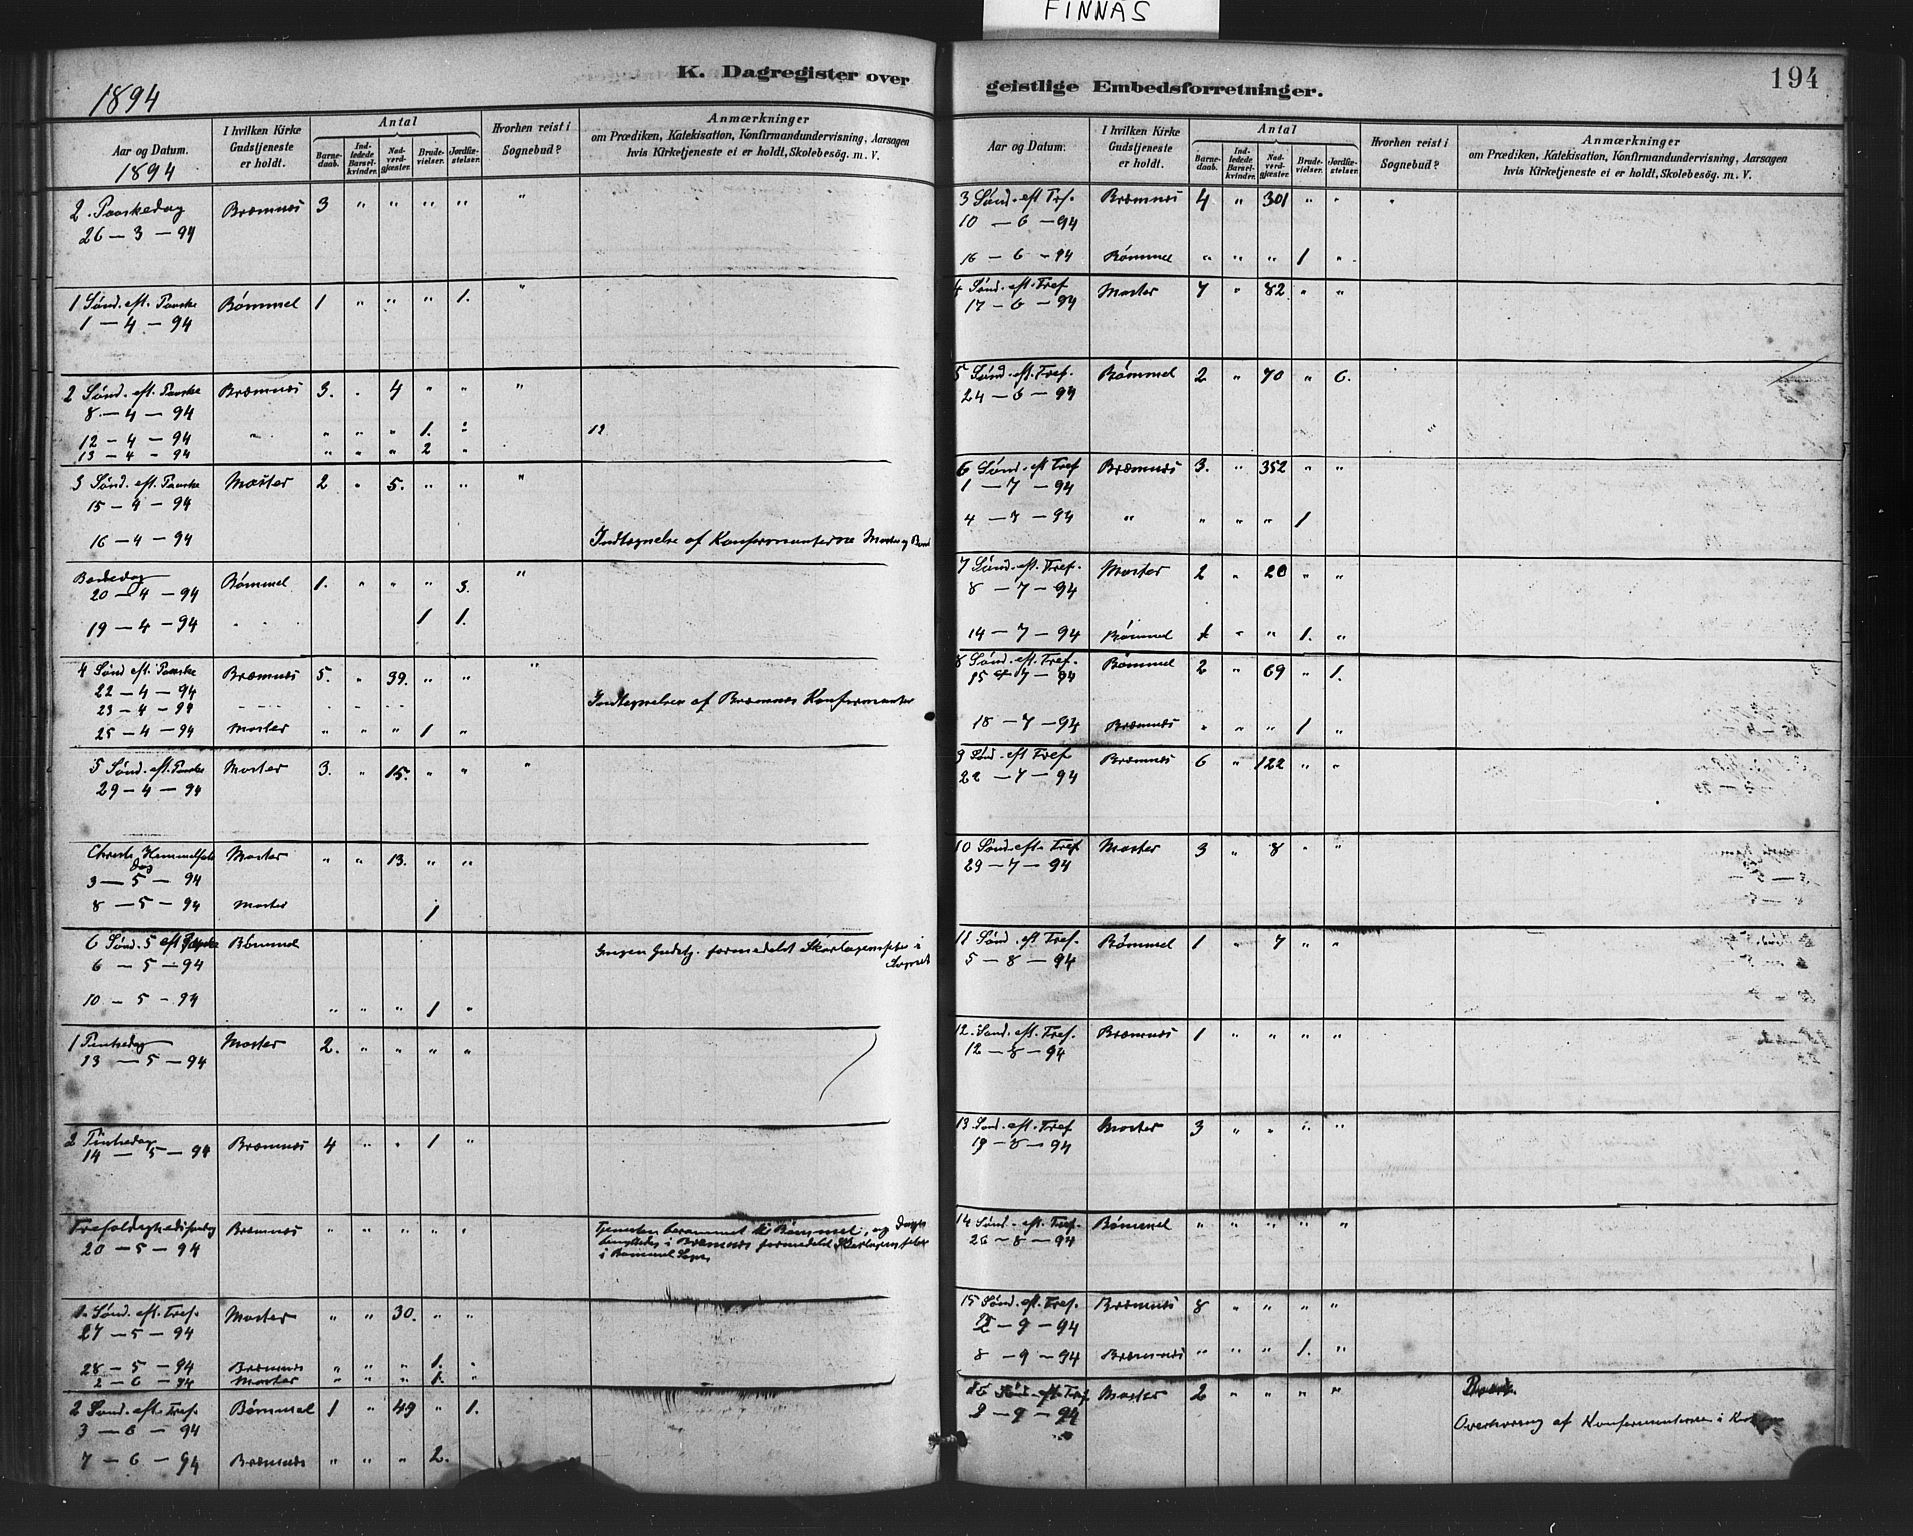 FINNÅS
K. Dagregister over geistlige Embedsforretninger.
194
1894
Aar og Datum.
1894
I hvilken Kirke Gudstjeneste er holdt.
Antal
Barne-daab.
Ind-ledede Barsel-kvinder.
Nad-verd-gjæster.
Brude-vielser.
Jordfæ-stelser.
Hvorhen reist i Sognebud?
Anmærkninger
om Prædiken, Katekisation, Konfirmandundervisning, Aarsagen
hvis Kirketjeneste ei er holdt, Skolebesög. m. V.
2. Paaskedag Bræmnæs 3 " " " " "
26 - 3 - 94
1 Sønd. eft. Paaske Bømmel 1 " " " 1. "
1 - 4 - 94
2 Sønd. eft. Paaske Bræmnæs 3. " 4 " " "
8 - 4 - 94
12 - 4 - 94 " " " " 1. " 12
13 - 4 - 94 " " " 2 "
3 Sønd. eft. Paaske Moster 2 " 5. " " "
15 - 4 - 94
16 - 4 - 94 Indtegnelse af Konfirmanterne Moster og
Bededag Bømmel 1. " " " 3. "
20 - 4 - 94
19 - 4 - 94 " " 1 1.
4 Sønd. eft. Paaske Bræmnæs 5. " 39. " " "
22 - 4 - 94
23 - 4 - 94 Indtegnelsen af Bræmnæs Konfirmanter
25 - 4 - 94 Moster " " " 1 "
5 Sønd. eft. Paaske Moster 3. " 15. " " "
29 - 4 - 94
Christi Himmelfarts Moster " " 13. " "
dag
3 - 5 - 94
8 - 5 - 94 Moster 1
6 Sønd. eft Paaske Bømmel Ingen Gudstj. formedelst Skarlagensfeber i
6 - 5 - 94 Sognet
10 - 5 - 94 " " " 1 "
1 Pintsedag Moster 2. " " " "
13 - 5 - 94
2 Pintsedag Bræmnæs 4 " " 1 "
14 - 5 - 94
Trefoldighedssøndag Bræmnæs " " " " Tjenesten berammet til Bømmel, og
20 - 5 - 94 i Bræmnæs formedelst Skarlagensfeber
i Bømmel Sogn
1. Sønd. eft. Tref. Moster " " 30. " "
27 - 5 - 94
28 - 5 - 94 Bræmnæs " " " 1. "
2 - 6 - 94 Moster " " " 1. "
2 Sønd. eft. Tref. Bømmel 1 " 49 " 1.
3 - 6 - 94
7 - 6 - 94 Bræmnæs " " " 2.
Aar og Datum.
I hvilken Kirke Gudstjeneste er holdt.
Antal
Barne-daab.
Ind-ledede Barsel-kvinder.
Nad-verd-gjæster.
Brude-vielser.
Jordfæ-stelser.
Hvorhen reist i Sognebud?
Anmærkninger
om Prædiken, Katekisation, Konfirmandundervisning, Aarsagen
hvis Kirketjeneste ei er holdt, Skolebesög. m. V.
3 Sønd. eft Trf. Bræmnæs 4 " 301 " " "
10 - 6 - 94
16 - 6 - 94 Bømmel " " " 1 "
4 Sønd. eft. Tref Moster 7 " 82 " "
17 - 6 - 94
5 Sønd. eft. Tref Bømmel 2 " 70 " 6.
24 - 6 - 94
6 Sønd. eft Tref Bræmnæs 3. " 352 " "
1 - 7 - 94
4 - 7 - 94 " " " " 1
7 Sønd. eft. Tref. Moster 2 " 20 " "
8 - 7 - 94
14 - 7 - 94 Bømmel " " 1. "
8 Sønd. eft. Tref. Bømmel 2 " 69 " 1.
15 - 7 - 94
18 - 7 - 94 Bræmnæs " " " 1 "
9 Sønd. eft Tref Bræmnæs 6 " 122 " "
22 - 7 - 94
10 Sønd. eft. Tref Moster 3 " 8 " "
29 - 7 - 94
11 Sønd. eft Tref. Bømmel 1 " 7 " "
5 - 8 - 94
12. Sønd. eft. Tref. Bræmnæs 1 " " " "
12 - 8 - 94
13 Sønd. eft Tref Moster 3 " " " "
19 - 8 - 94
14 Sønd. eft. Tref. Bømmel " " " " "
26 - 8 - 94
15 Sønd. eft. Tref. Bræmnæs 8 " " " "
2 - 9 - 94
8 - 9 - 94 Bræmnæs " " " 1. "
Sønd. eft Tref. Moster 2 " " " "
9 - 94 Overhøring af Konfirmanterne i